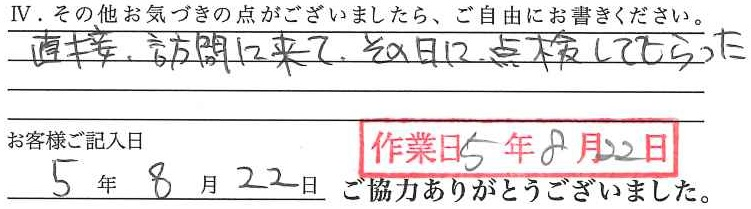 Ⅳ．その他お気づきの点がございましたら、ご自由にお書きください。
直接、訪問に来て、その日に、点検してもらった
お客様ご記入日
作業日5年8月22日
5年8月22日
ご協力ありがとうございました。